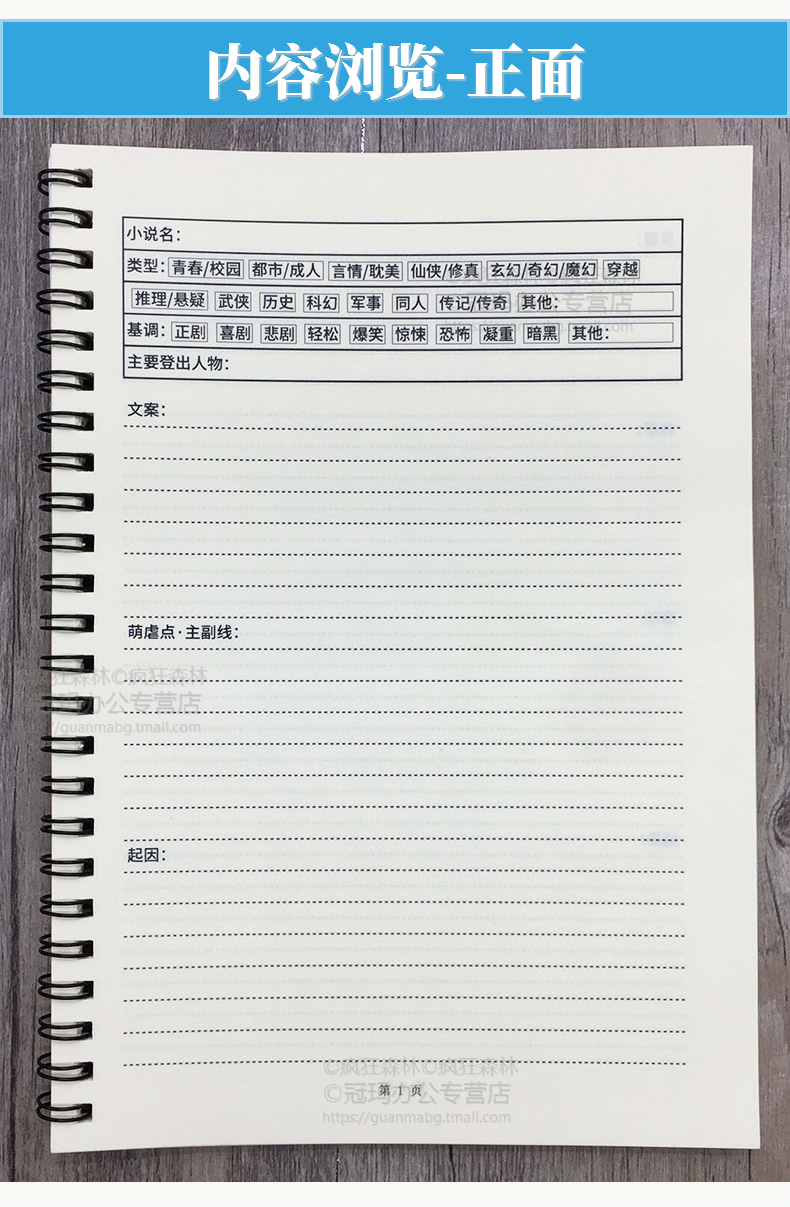 内容浏览-正面
小说名：
类型：青春/校园 都市/成人 言情/耽美 仙侠/修真 玄幻/奇幻/魔幻 穿越
推理/悬疑 武侠 历史 科幻 军事 同人 传记/传奇 其他：
基调：正剧 喜剧 悲剧 轻松 爆笑 惊悚 恐怖 凝重 暗黑 其他：
主要登出人物：
文案：
萌虐点·主副线：
狂森林©疯狂森林
冠玛办公专营店
/guanmabg.tmall.com
起因：
©疯狂森林©疯狂森林
第 1 页
©冠玛办公专营店
https://guanmabg.tmall.com